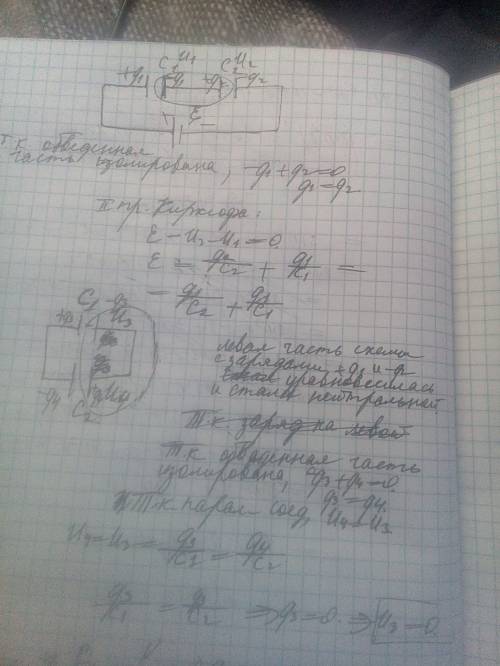 C₁ U₁ C₂ U₂
+q₁ -q₁ +q₂ -q₂
ε
Т.к обведенная
часть изолирована, -q₁+q₂=0
q₁=q₂
II пр. Кирхгофа:
ε-U₂-U₁=0.
ε = q₂/C₂ + q₁/C₁ =
= q₁/C₂ + q₁/C₁
C₁ -q₃
U₃
U₄
-q₄
C₂
левая часть схемы
с зарядами +q₁ и -q₂
уравновесилась
и стала нейтральной
Т.к. заряд на левой
Т.к обведенная часть
изолирована, q₃+q₄=0.
q₃=q₄.
Т.к парал-соед, U₄=U₃
U₄=U₃= q₃/C₁ = q₄/C₂
q₃/C₁ = q₃/C₂ ⇒ q₃=0. ⇒ U₃=0.